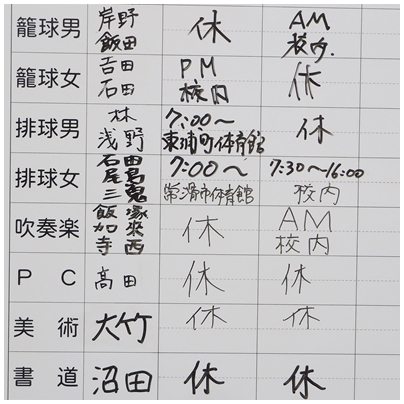 籠球男 岸野 飯田 休 AM 校内.
籠球女 吉田 石田 PM 校内 休
排球男 林 浅野 7:00～ 東浦町体育館 休
排球女 石田 尾島 三鬼 7:00～ 常滑市体育館 7:30～16:00 校内
吹奏楽 飯塚 加来 寺西 休 AM 校内
PC 高田 休 休
美術 大竹 休 休
書道 沼田 休 休